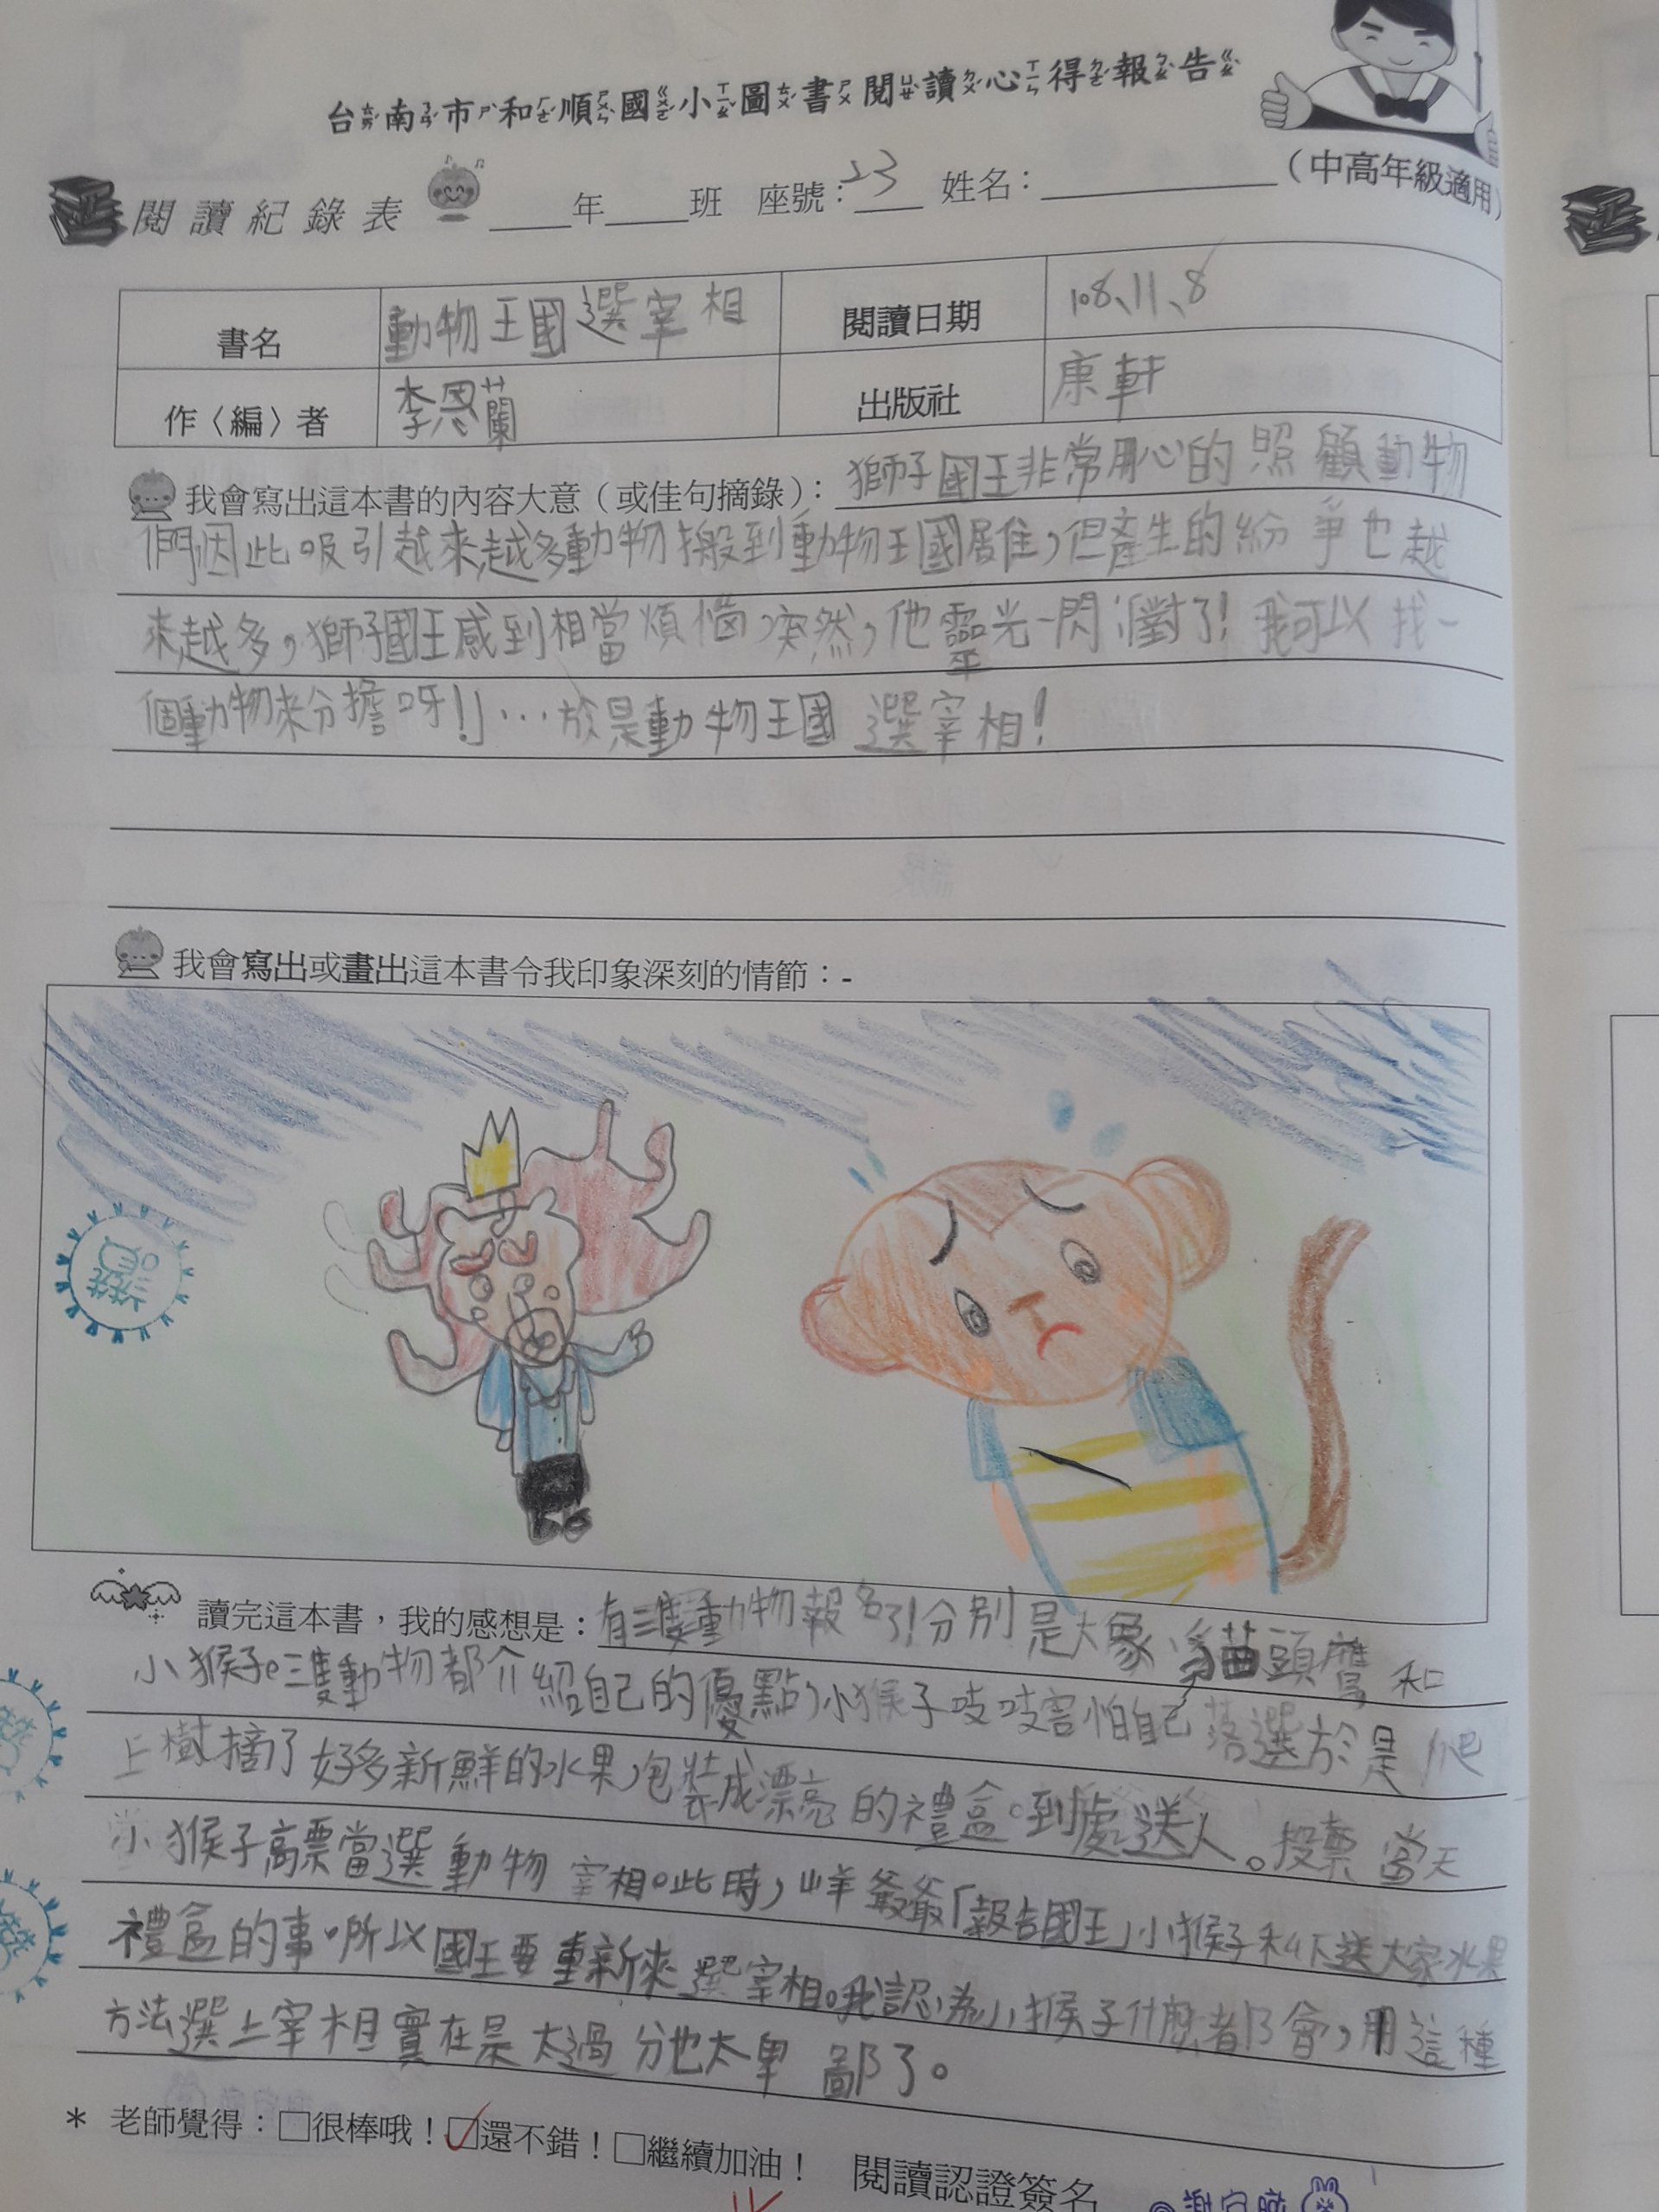 台南市和順國小圖書閱讀心得報告
閱讀紀錄表 ____年____班 座號：23 姓名：________（中高年級適用）
書名 動物王國選宰相 閱讀日期 108、11、8
作〈編〉者 李恩蘭 出版社 康軒
我會寫出這本書的內容大意（或佳句摘錄）：獅子國王非常用心的照顧動物
們因此吸引越來越多動物搬到動物王國居住，但產生的紛爭也越
來越多，獅子國王感到相當煩惱，突然，他靈光一閃「對了！我可以找一
個動物來分擔呀！」…於是動物王國選宰相！
我會寫出或畫出這本書令我印象深刻的情節：-
讀完這本書，我的感想是：有三隻動物報名了！分別是大象、貓頭鷹和
小猴子。三隻動物都介紹自己的優點，小猴子吱吱害怕自己落選於是爬
上樹摘了好多新鮮的水果，包裝成漂亮的禮盒。到處送人。投票當天
小猴子高票當選動物宰相。此時，山羊爺爺「報告國王」小猴子私下送大家水果
禮盒的事，所以國王要重新來選宰相。我認為小猴子什麼都會，用這種
方法選上宰相實在是太過分也太卑鄙了。
* 老師覺得：□很棒哦！☑還不錯！□繼續加油！ 閱讀認證簽名